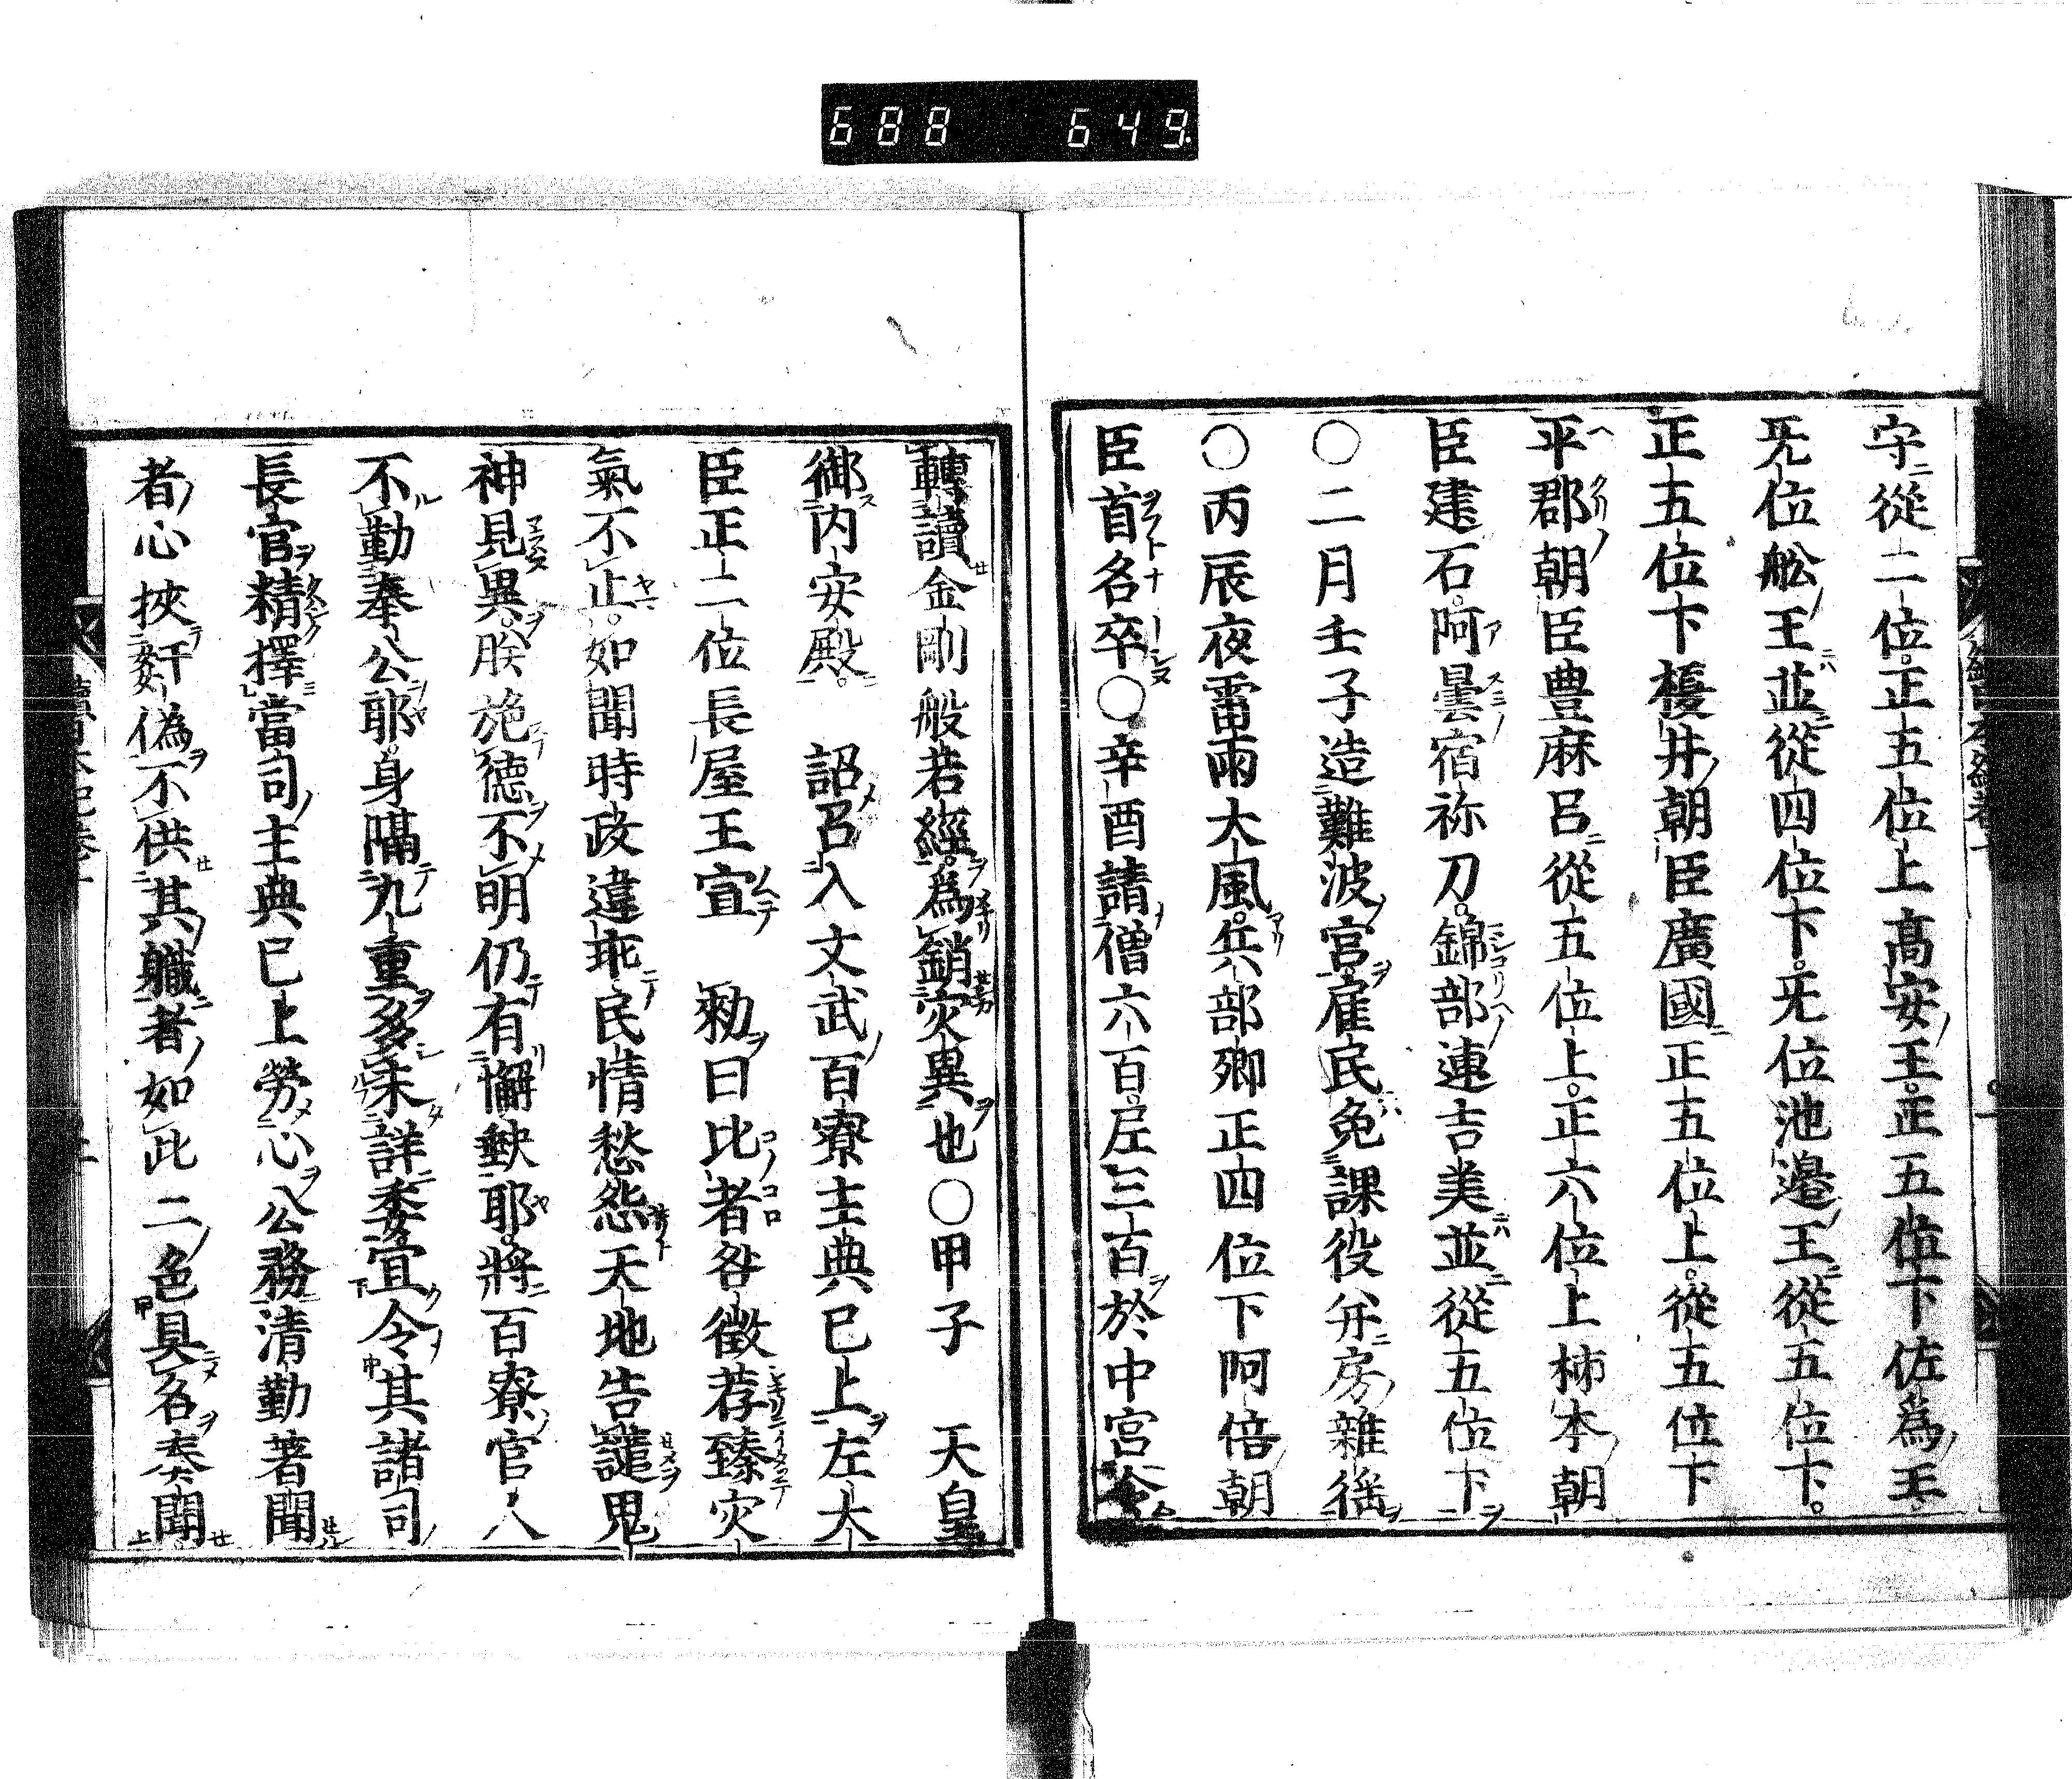 688 649
守從二位正五位上高安王。正五位下佐爲王
旡位舩王並從四位下。旡位池邉王從五位下。
正五位下榎井朝臣廣國正五位上。從五位下
平郡朝臣豊麻呂從五位上。正六位上柿本朝
臣建石。阿曇宿祢刀。錦部連吉美並從五位下
〇二月壬子造難波宮。雇民免課役并房雜徭
〇丙辰夜雷雨大風。兵部卿正四位下阿倍朝
臣首名卒〇辛酉請僧六百。尼三百於中宮令
轉讀金剛般若經。爲銷灾異也〇甲子 天皇
御内安殿。 詔召入文武百寮主典已上左大
臣正二位長屋王宣 勅曰比者咎徵荐臻灾
氣不止。如聞時政違乖民情愁怨天地告譴鬼
神見異。朕施德不明仍有懈缺耶。將百寮官人
不勤奉公耶。身隔九重多未詳委宜令其諸司
長官精擇當司主典已上勞心公務清勤著聞
者心挾姧偽不供其職者如此二色具名奏聞